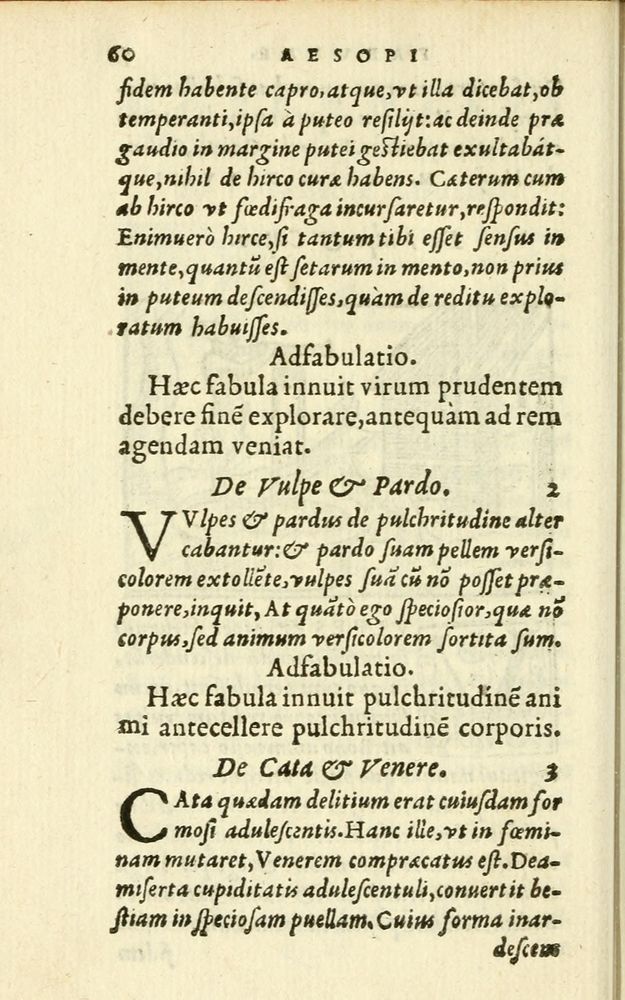 60 AESOPI
fidem habente capro, atque, vt illa dicebat, ob
temperanti, ipſa à puteo reſilijt: ac deinde præ
gaudio in margine putei geſtiebat exultabát-
que, nihil de hirco curæ habens. Cæterum cum
ab hirco vt fœdifraga incurſaretur, reſpondit:
Enimuerò hirce, ſi tantum tibi eſſet ſenſus in
mente, quantũ eſt ſetarum in mento, non prius
in puteum deſcendiſſes, quàm de reditu explo-
ratum habuiſſes.
Adfabulatio.
Hæc fabula innuit virum prudentem
debere finẽ explorare, antequàm ad rem
agendam veniat.
De Vulpe & Pardo. 2
VVlpes & pardus de pulchritudine alter
cabantur: & pardo ſuam pellem verſi-
colorem extollẽte, vulpes ſuã cũ nõ poſſet præ-
ponere, inquit, At quãtò ego ſpecioſior, quæ nõ
corpus, ſed animum verſicolorem ſortita ſum.
Adfabulatio.
Hæc fabula innuit pulchritudinẽ ani
mi antecellere pulchritudinẽ corporis.
De Cata & Venere. 3
CAta quædam delitium erat cuiuſdam for
moſi aduleſcentis. Hanc ille, vt in fœmi-
nam mutaret, Venerem compræcatus eſt. Dea-
miſerta cupiditatis aduleſcentuli, conuertit be-
ſtiam in ſpecioſam puellam. Cuius forma inar-
deſcens